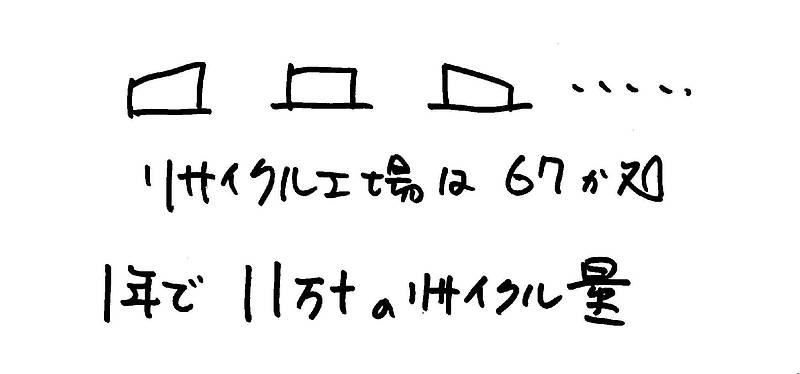 リサイクル工場は 67か所
1年で 11万tのリサイクル量